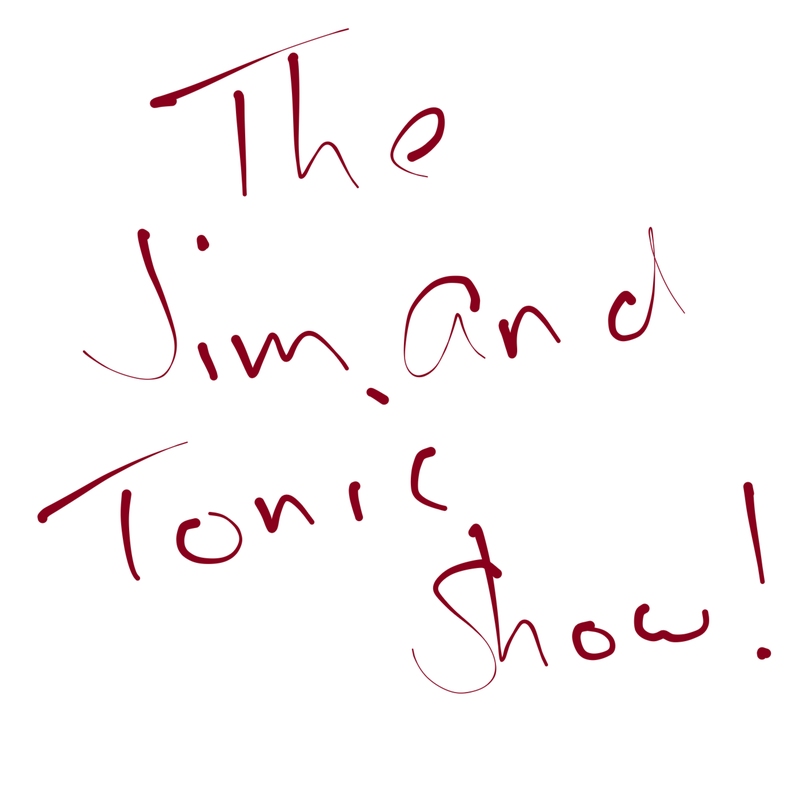 The
Jim and
Tonic
Show!